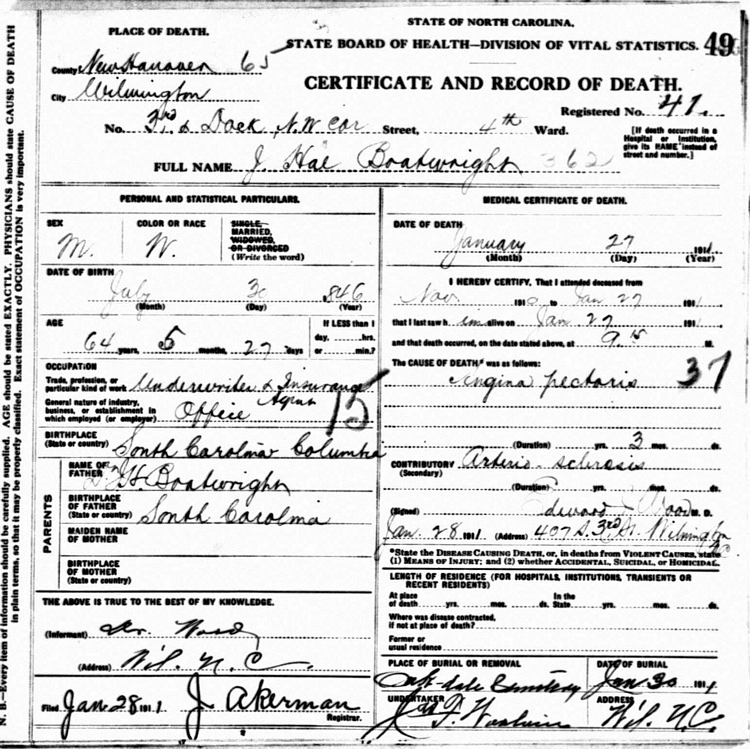 N. B.—Every item of information should be carefully supplied. AGE should be stated EXACTLY. PHYSICIANS should state CAUSE OF DEATH
in plain terms, so that it may be properly classified. Exact statement of OCCUPATION is very important.
PLACE OF DEATH.
County New Hanover 65
City Wilmington
STATE OF NORTH CAROLINA.
STATE BOARD OF HEALTH—DIVISION OF VITAL STATISTICS. 49
CERTIFICATE AND RECORD OF DEATH.
Registered No. 41.
No. 3rd & Dock, N.W cor Street, 4th Ward.
[If death occurred in a Hospital or Institution, give its NAME instead of street and number.]
FULL NAME J Hal Boatwright 362
PERSONAL AND STATISTICAL PARTICULARS.
SEX
M.
COLOR OR RACE
W.
SINGLE,
MARRIED,
WIDOWED,
OR DIVORCED
(Write the word)
DATE OF BIRTH
July 30 846
(Month) (Day) (Year)
AGE
64 years, 5 months, 27 days
If LESS than 1
day, hrs.
or min.?
OCCUPATION
Trade, profession, or
particular kind of work Underwriter & Insurance
Agent
General nature of industry,
business, or establishment in
which employed (or employer) Office 15
BIRTHPLACE
(State or country) South Carolina Columbia
PARENTS
NAME OF
FATHER H. Boatwright
BIRTHPLACE
OF FATHER
(State or country) South Carolina
MAIDEN NAME
OF MOTHER
BIRTHPLACE
OF MOTHER
(State or country)
THE ABOVE IS TRUE TO THE BEST OF MY KNOWLEDGE.
(Informant) Dr. Wood
(Address) Wil. N.C.
Filed Jan 28 1911 J Akerman
Registrar.
MEDICAL CERTIFICATE OF DEATH.
DATE OF DEATH
January 27 1911
(Month) (Day) (Year)
I HEREBY CERTIFY, That I attended deceased from
Nov. 1910 to Jan 27 1911
that I last saw him alive on Jan 27 1911
and that death occurred, on the date stated above, at M.
The CAUSE OF DEATH* was as follows:
Angina pectoris 37
(Duration) yrs. 3 mos. ds.
CONTRIBUTORY Arterio-sclerosis
(Secondary)
(Duration) yrs. mos. ds.
(Signed) Edward J Wood M. D.
Jan 28 1911 (Address) 407 S. 3rd St. Wilmington
NC
*State the DISEASE CAUSING DEATH, or, in deaths from VIOLENT CAUSES, state
(1) MEANS OF INJURY; and (2) whether ACCIDENTAL, SUICIDAL, or HOMICIDAL.
LENGTH OF RESIDENCE (FOR HOSPITALS, INSTITUTIONS, TRANSIENTS OR
RECENT RESIDENTS)
At place
of death yrs. mos. ds.
In the
State yrs. mos. ds.
Where was disease contracted,
if not at place of death?
Former or
usual residence
PLACE OF BURIAL OR REMOVAL
Oakdale Cemetery
DATE OF BURIAL
Jan 30 1911
UNDERTAKER
Jas F. Woolvin
ADDRESS
Wil. N.C.